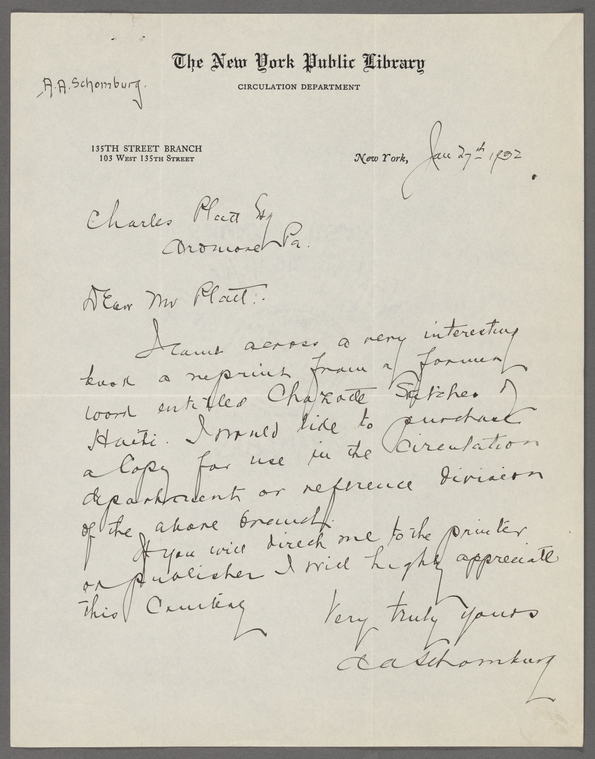 The New York Public Library
CIRCULATION DEPARTMENT
A.A. Schomburg.
135TH STREET BRANCH
103 WEST 135TH STREET
New York, Jan 27th 1932
Charles Platt Esq
Ardmore Pa.
Dear Mr Platt:.
I came across a very interesting
book a reprint from a former
word entitled Sketches of
Haiti. I would like to purchase
a Copy for use in the Circulation
department or reference division
of the above branch.
If you will direct me to the printer
or publisher I will highly appreciate
this Courtesy
Very truly yours
A A Schomburg